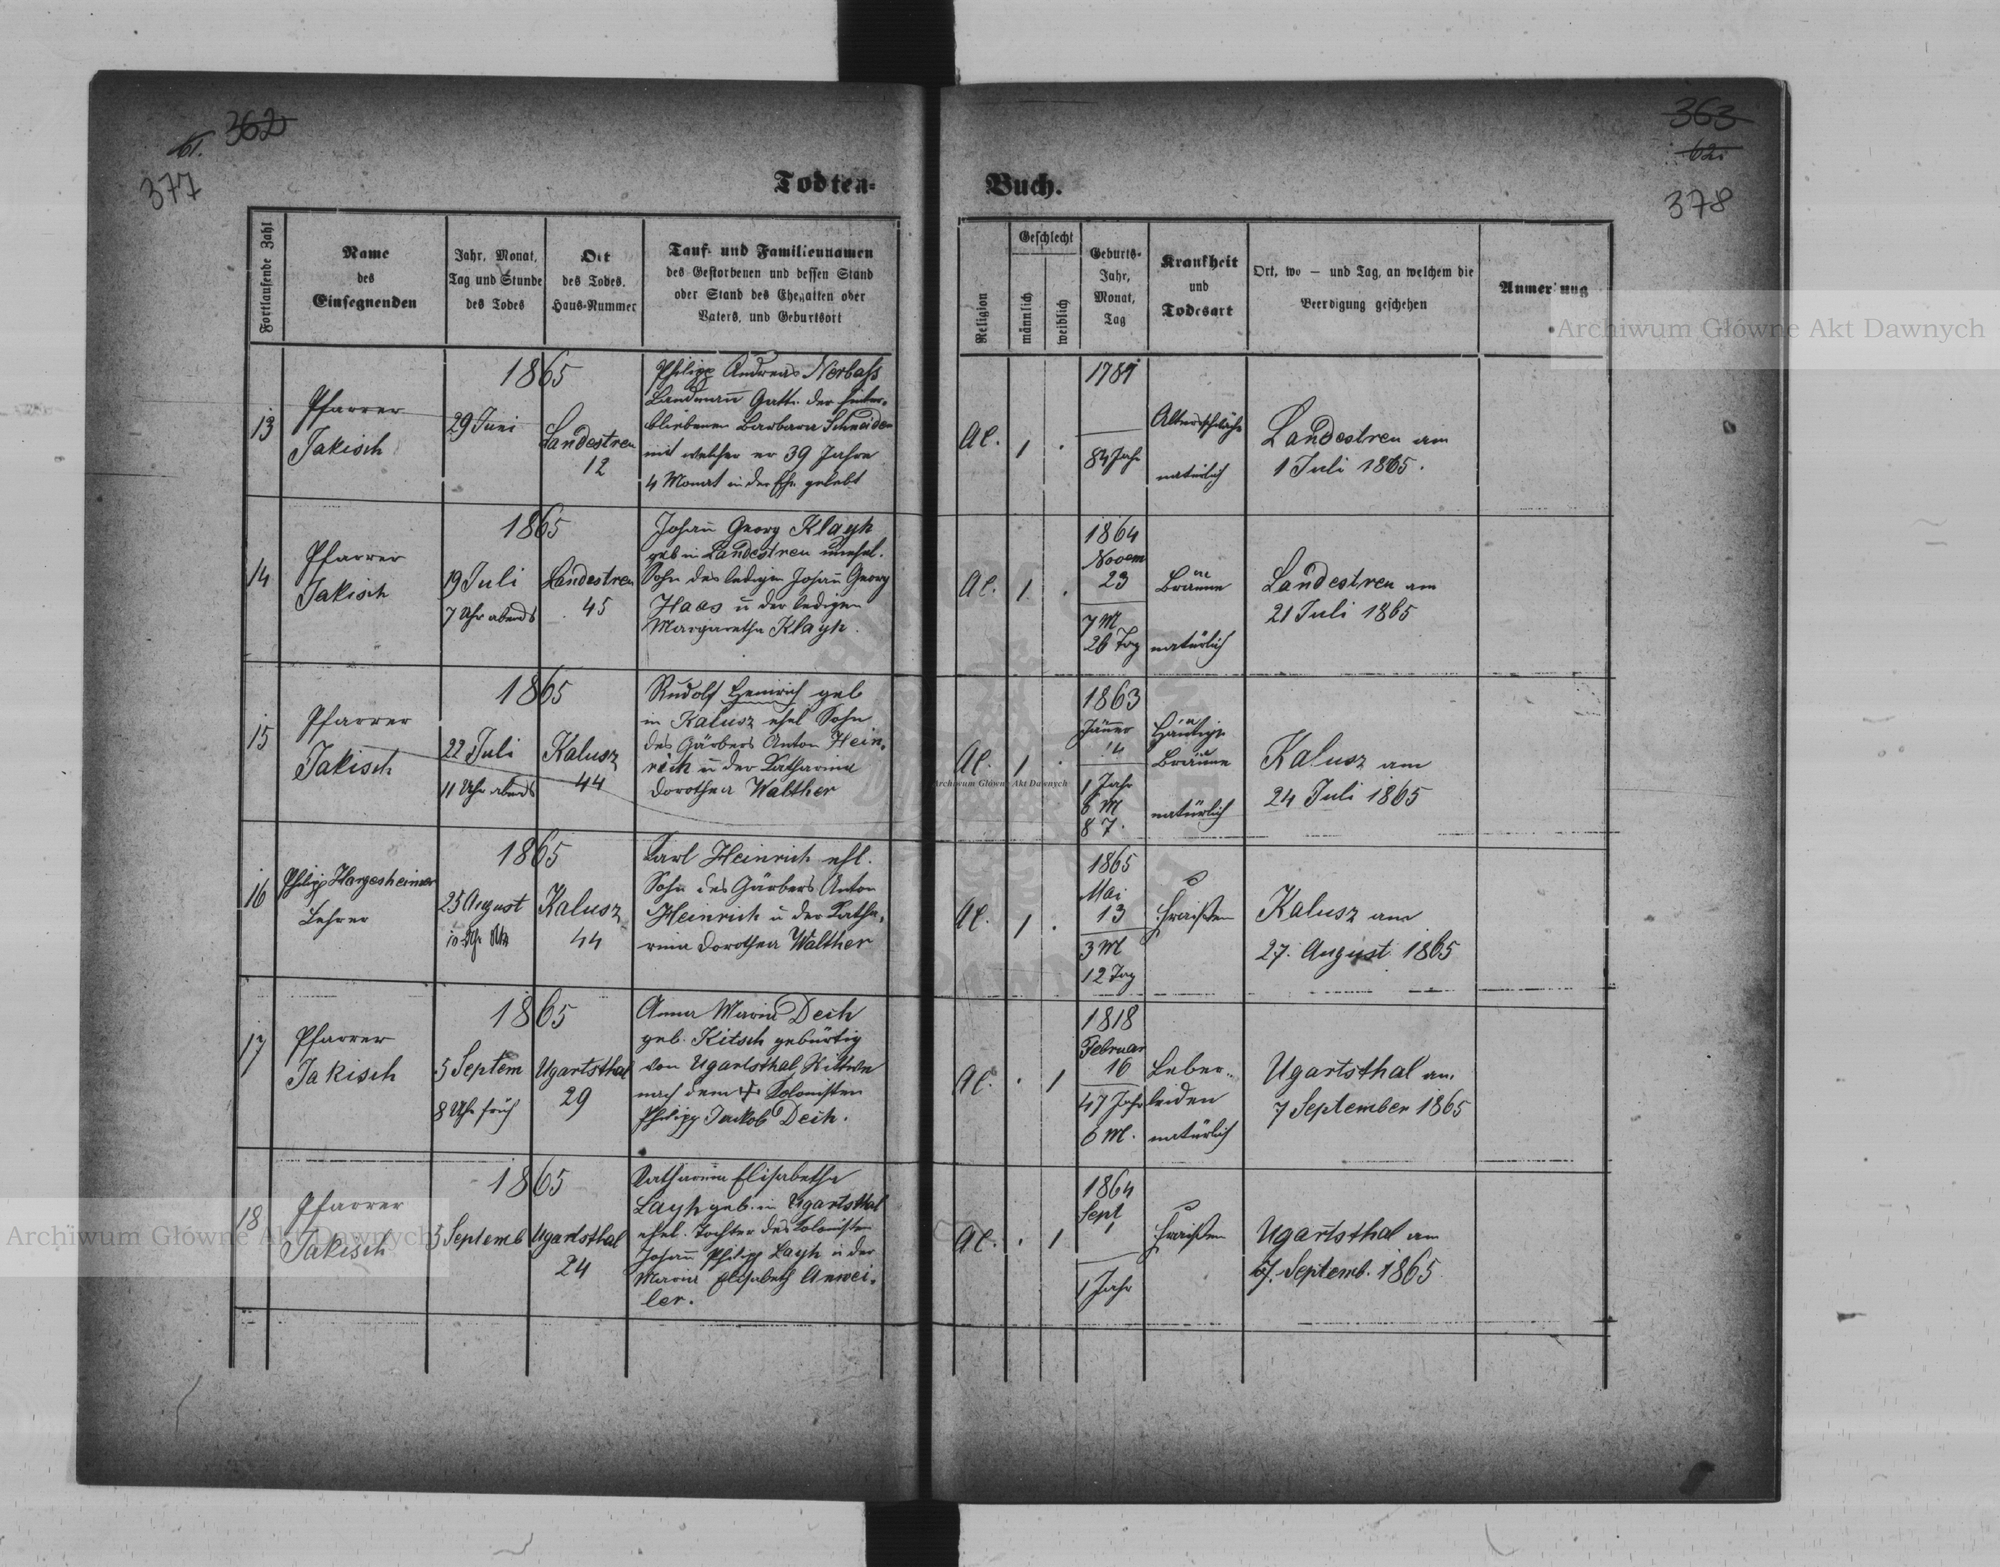 362
61.
377
363
62.
378
Todten-
Buch.
Fortlaufende Zahl
Name
des
Einsegnenden
Jahr, Monat,
Tag und Stunde
des Todes
Ort
des Todes.
Haus-Nummer
Tauf- und Familiennamen
des Gestorbenen und dessen Stand
oder Stand des Ehegatten oder
Vaters, und Geburtsort
Religion
Geschlecht
männlich
weiblich
Geburts-
Jahr,
Monat,
Tag
Krankheit
und
Todesart
Ort, wo – und Tag, an welchem die
Beerdigung geschehen
Anmerkung
13
Pfarrer
Jakisch
1865
29 Juni
Landestreu
12
Philipp Andreas Nerbass
Landmann Gatte der hinter-
bliebenen Barbara Schneider
mit welcher er 39 Jahre
4 Monat in der Ehe gelebt
Al.
1
.
1781
84 Jahr
Altersschwäche
natürlich
Landestreu am
1 Juli 1865.
14
Pfarrer
Jakisch
1865
19 Juli
7 Uhr abends
Landestreu
45
Johann Georg Klayh
geb in Landestreu unehel.
Sohn des ledigen Johann Georg
Haas u der ledigen
Margaretha Klayh.
Al.
1
.
1864
Novem
23
7 M
26 Tag
Bräune
natürlich
Landestreu am
21 Juli 1865
15
Pfarrer
Jakisch
1865
22 Juli
11 Uhr abends
Kalusz
44
Rudolf Heinrich geb
in Kalusz ehel Sohn
des Gärbers Anton Hein-
rich u der Katharina
Dorothea Walther
Al.
1
.
1863
Jänner
14
1 Jahr
6 M
8 T.
Häutige
Bräune
natürlich
Kalusz am
24 Juli 1865
16
Philipp Hargesheimer
Lehrer
1865
25 August
10 Uhr
Kalusz
44
Karl Heinrich ehl.
Sohn des Gärbers Anton
Heinrich u der Katha-
rina Dorothea Walther
Al.
1
.
1865
Mai
13
3 M
12 Tag
Fraißen
Kalusz am
27. August 1865
17
Pfarrer
Jakisch
1865
5 Septem
8 Uhr früh
Ugartsthal
29
Anna Maria Dech
geb. Kitsch gebürtig
von Ugartsthal, Wittwe
nach dem † Kolonisten
Philipp Jakob Dech.
Al.
.
1
1818
Februar
16
47 Jahr
6 M.
Leber-
leiden
natürlich
Ugartsthal am
7 September 1865
18
Pfarrer
Jakisch
1865
5 Septemb
Ugartsthal
24
Katharina Elisabetha
Layh geb. in Ugartsthal
ehel. Tochter des Kolonisten
Johann Philipp Layh u der
Maria Elisabeth Anwei-
ler.
Al.
.
1
1864
Sept
1
1 Jahr
Fraißen
Ugartsthal am
7. Septemb. 1865
Archiwum Główne Akt Dawnych
Archiwum Główne Akt Dawnych
Archiwum Główne Akt Dawnych